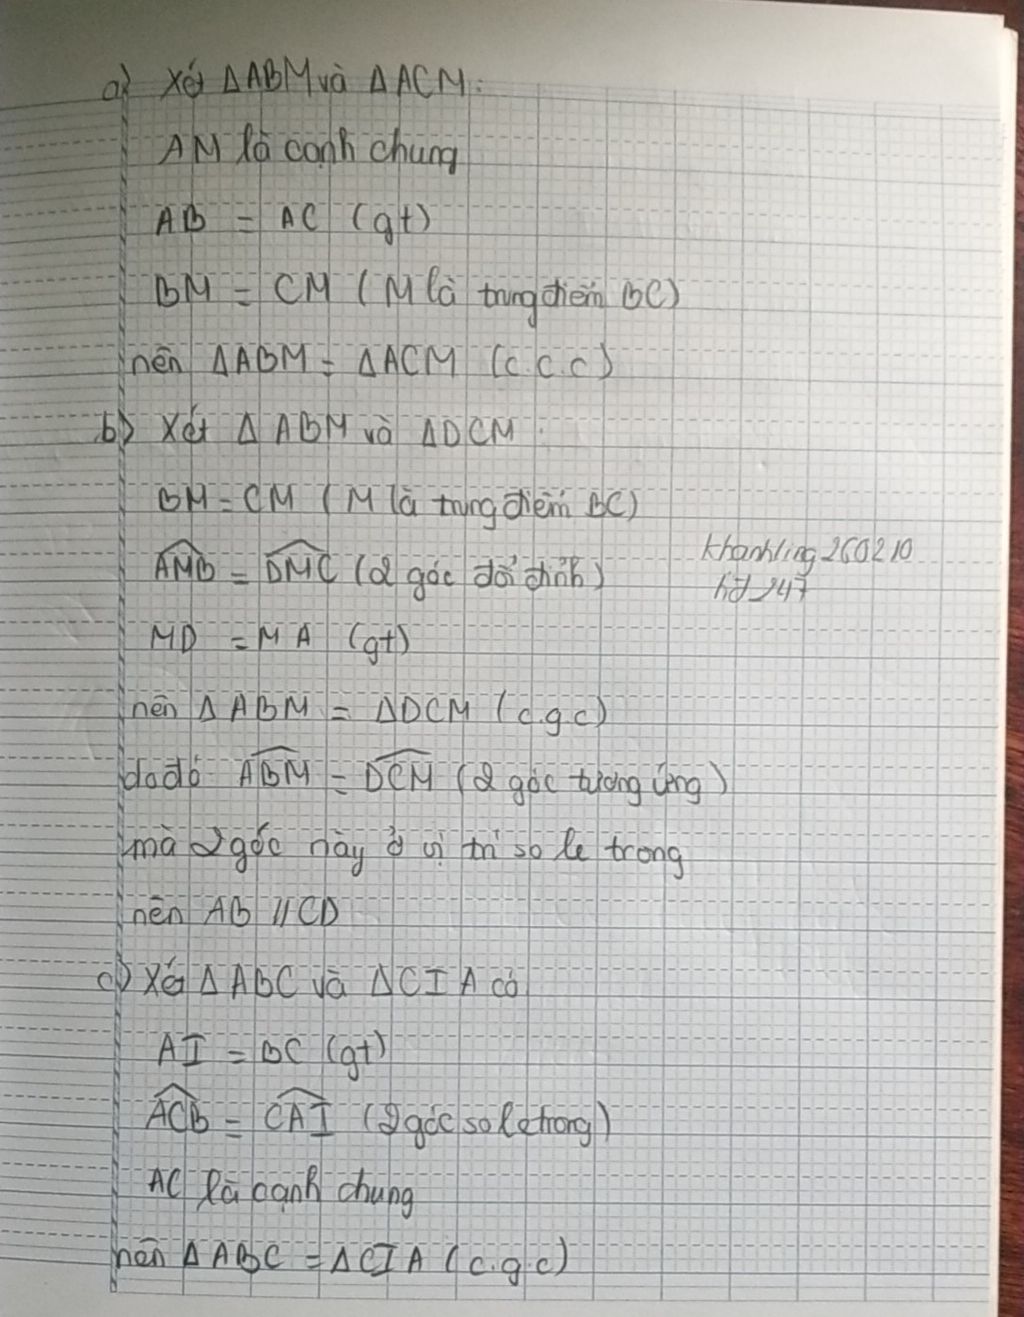 a) Xét ΔABM và ΔACM:
AM là cạnh chung
AB = AC (gt)
BM = CM (M là trung điểm BC)
nên ΔABM = ΔACM (c.c.c)
b) Xét ΔABM và ΔDCM:
BM = CM (M là trung điểm BC)
\widehat{AMB} = \widehat{DMC} (2 góc đối đỉnh)
khanhling260210
hd247
MD = MA (gt)
nên ΔABM = ΔDCM (c.g.c)
do đó \widehat{ABM} = \widehat{DCM} (2 góc tương ứng)
mà 2 góc này ở vị trí so le trong
nên AB // CD
c) Xét ΔABC và ΔCIA có
AI = BC (gt)
\widehat{ACB} = \widehat{CAI} (2 góc so le trong)
AC là cạnh chung
nên ΔABC = ΔCIA (c.g.c)